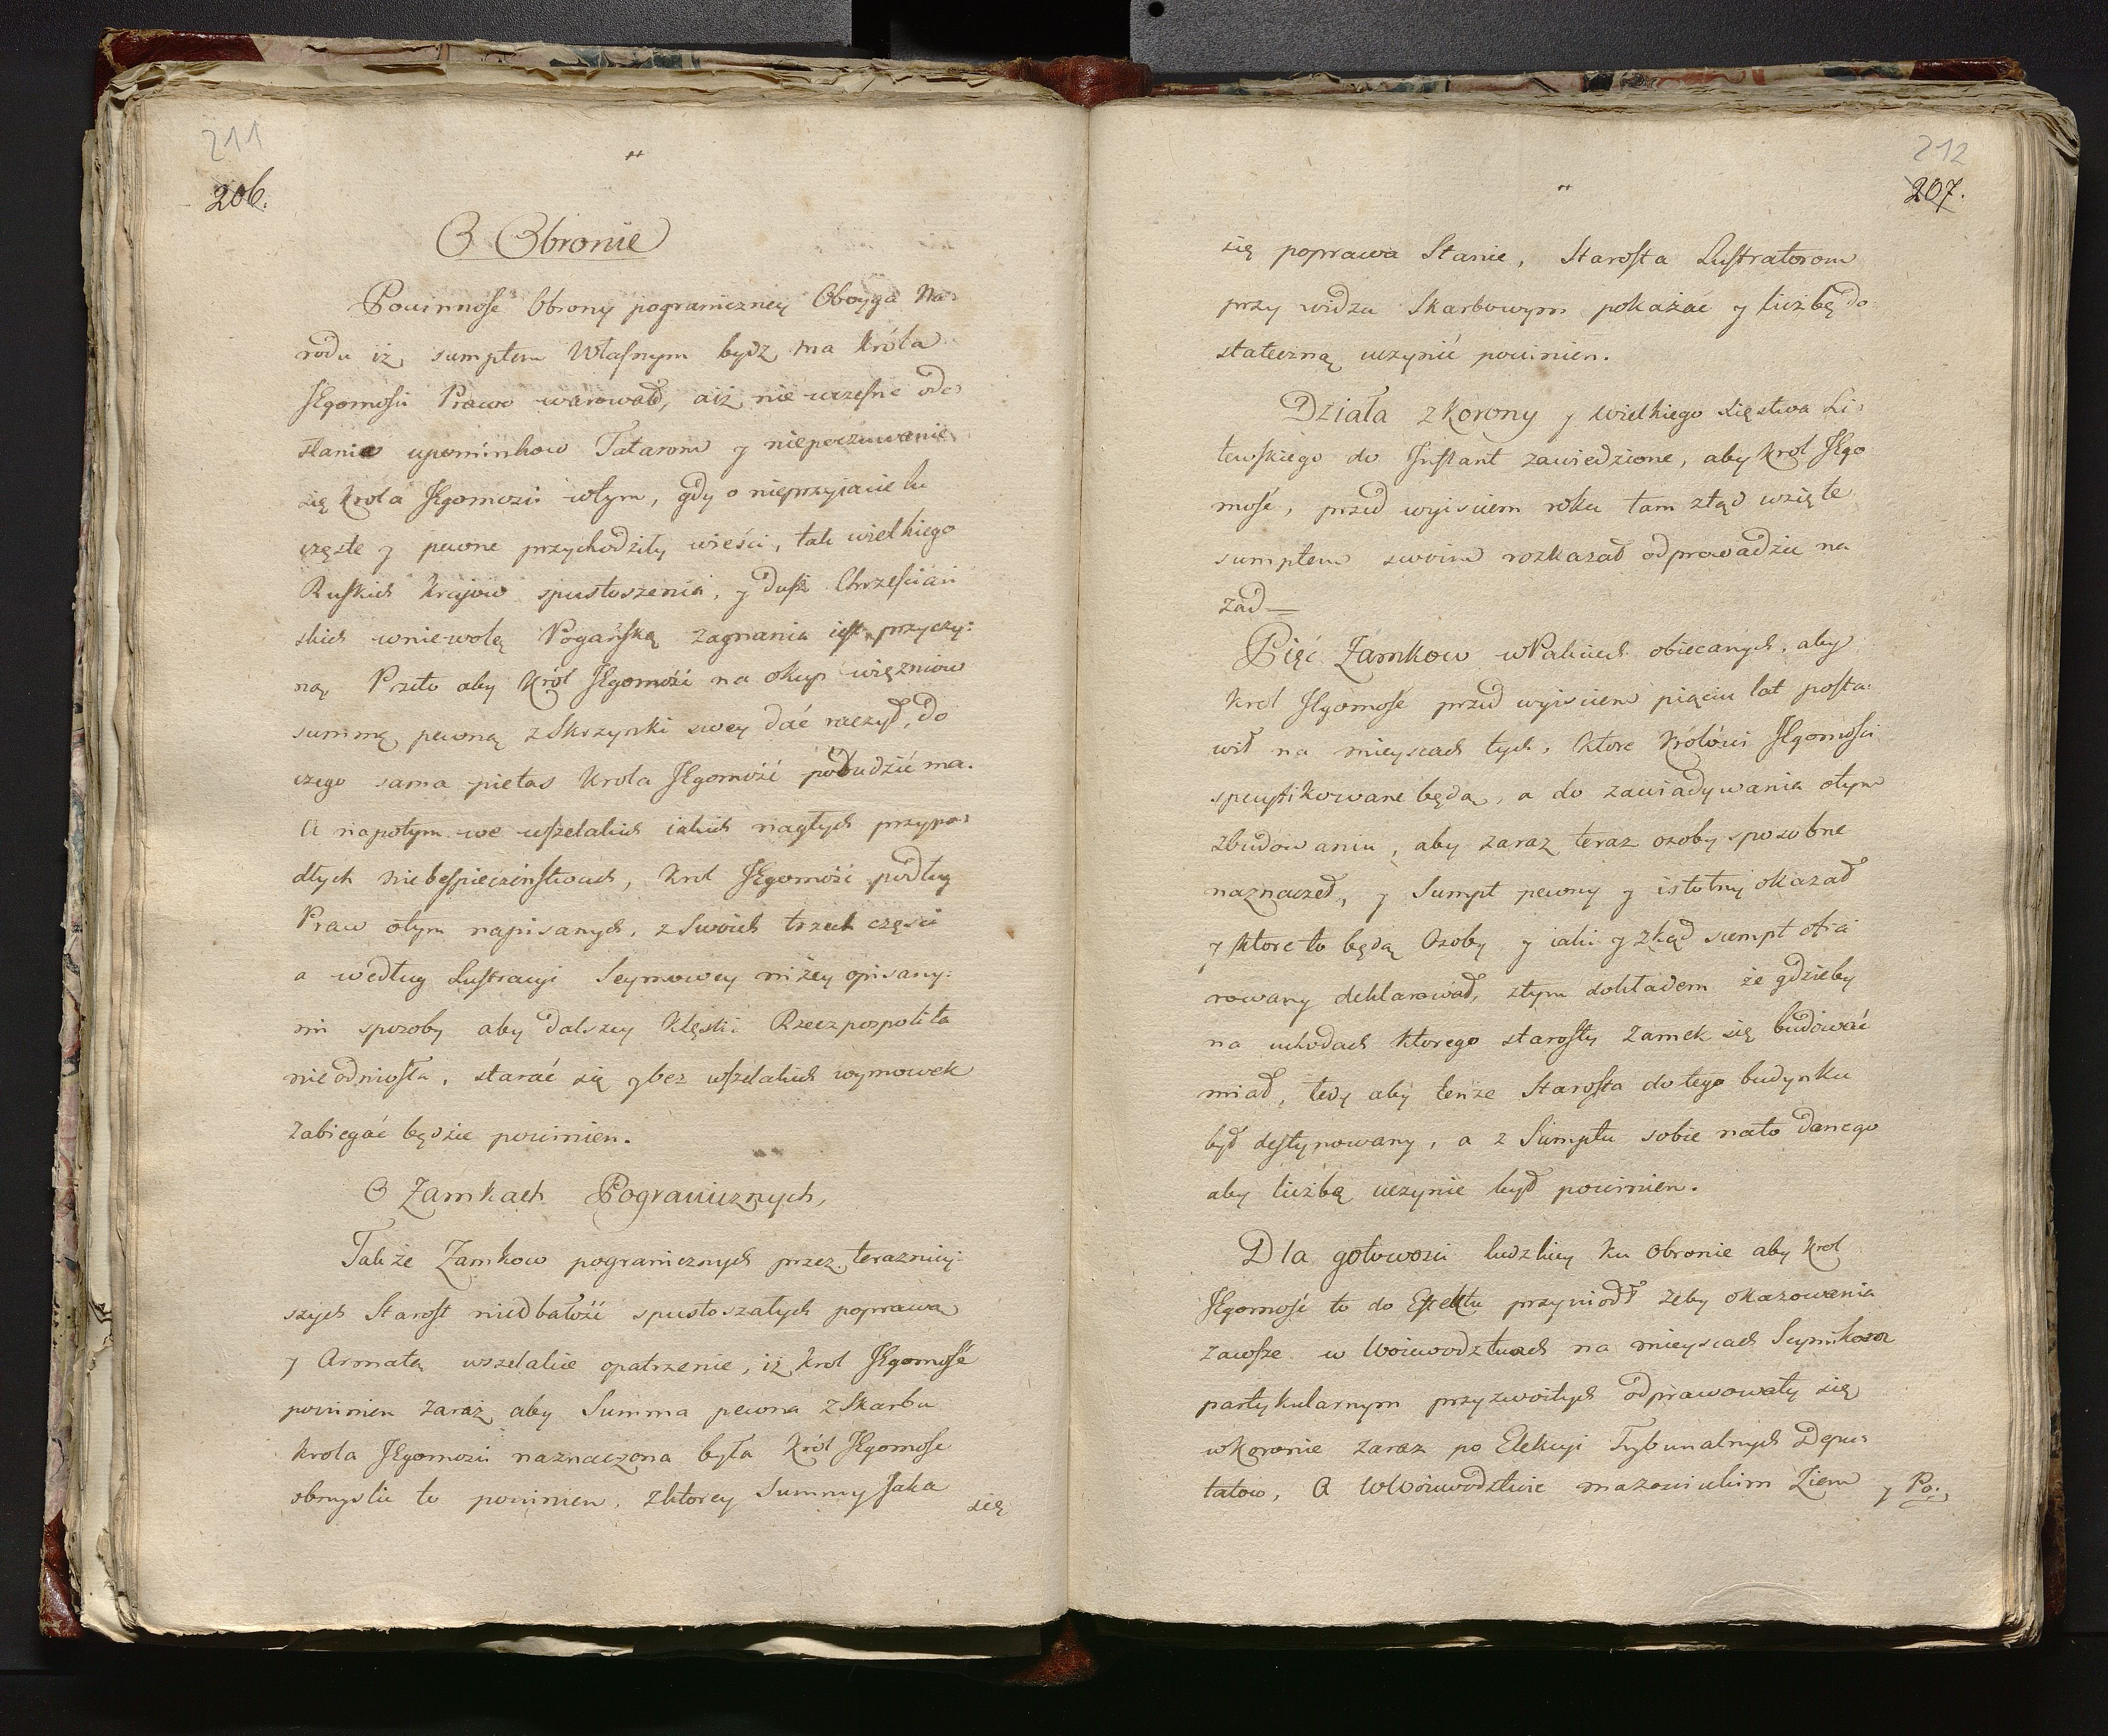 211
206.
O Obronie
Powinnosc Obrony pograniczney Oboyga Na-
rodu iz sumptem Własnym bydz ma Króla
JEgomosci Prawo warował, aiż nie wczesne ode-
słanie upominkow Tatarom y niepoczuwanie
się Krola JEgomozci wtym, gdy o nieprzyiacielu
częste y pewne przychodziły wieści, tak wielkiego
Ruskich Kraiow spustoszenia, y dusz Chrzescian
skich wniewolą Pogańską zagnania iest przyczy-
ną. Przeto aby Król JEgomość na okup więzniow
summę pewną z Skrzynki swey dać raczył, do
czego sama pietas Krola JEgomość pobudzić ma.
A napotym we wszelakich iakich nagłych przypa-
dłych niebespieczeństwach, Krol JEgomość podług
Praw otym napisanych, z Swoich trzech części
a według Lustracyi Seymowey niżey opisany-
mi sposoby aby dalszey klęski Rzeczpospolita
nieodniosła, starać się y bez wszelakich wymowek
zabiegać będzie powinien.
O Zamkach Pogranicznych,
Także Zamkow pogranicznych przez terazniey-
szych Starost niedbałość spustoszałych poprawa
y Armatą wszelakie opatrzenie, iż Krol JEgomość
powinien zaraz aby Summa pewna z Skarbu
Krola JEgomozci naznaczona była Król JEgomosc
obmyslic to powinien, zktorey Summy Jaka
się
212
207.
się poprawa Stanie, Starosta Lustratorom
przy widzu Skarbowym pokazać y liczbę do-
stateczną uczynić powinien.
Działa z Korony y Wielkiego Xięstwa Li-
tewskiego do Inflant zawiedzione, aby Krol JEgo
mość, przed wyisciem roku tam ztąd wzięte
sumptem swoim rozkazał odprowadzic na
zad —
Pięć Zamkow wPaktach obiecanych, aby
Krol JEgomość przed wyisciem pięciu lat posta-
wił na mieyscach tych, ktore Królowi JEgomości
specyfikowane będą, a do zawiadywania otym
zbudowaniu, aby zaraz teraz osoby sposobne
naznaczeł, y Sumpt pewny y istotny okazał
y ktore to będą Osoby y iaki y zkąd sumpt ofia
rowany deklarował, ztym dokładem że gdzieby
na uchodach ktorego starosty Zamek się budować
miał, tedy aby tenże Starosta do tego budynku
był destynowany, a z Sumptu sobie nato danego
aby liczbę uczynic był powinien.
Dla gotowosci ludzkiey ku obronie aby Krol
JEgomość to do Efektu przywiodł żeby okazowania
zawsze w Woiewodztwach na mieyscach Seymikom
partykularnym przyzwoitych odprawowały się
wKoronie zaraz po Elekcyi Trybunalnych Depu-
tatow, A wWoiewodztwie mazowieckim Ziem
y Po: